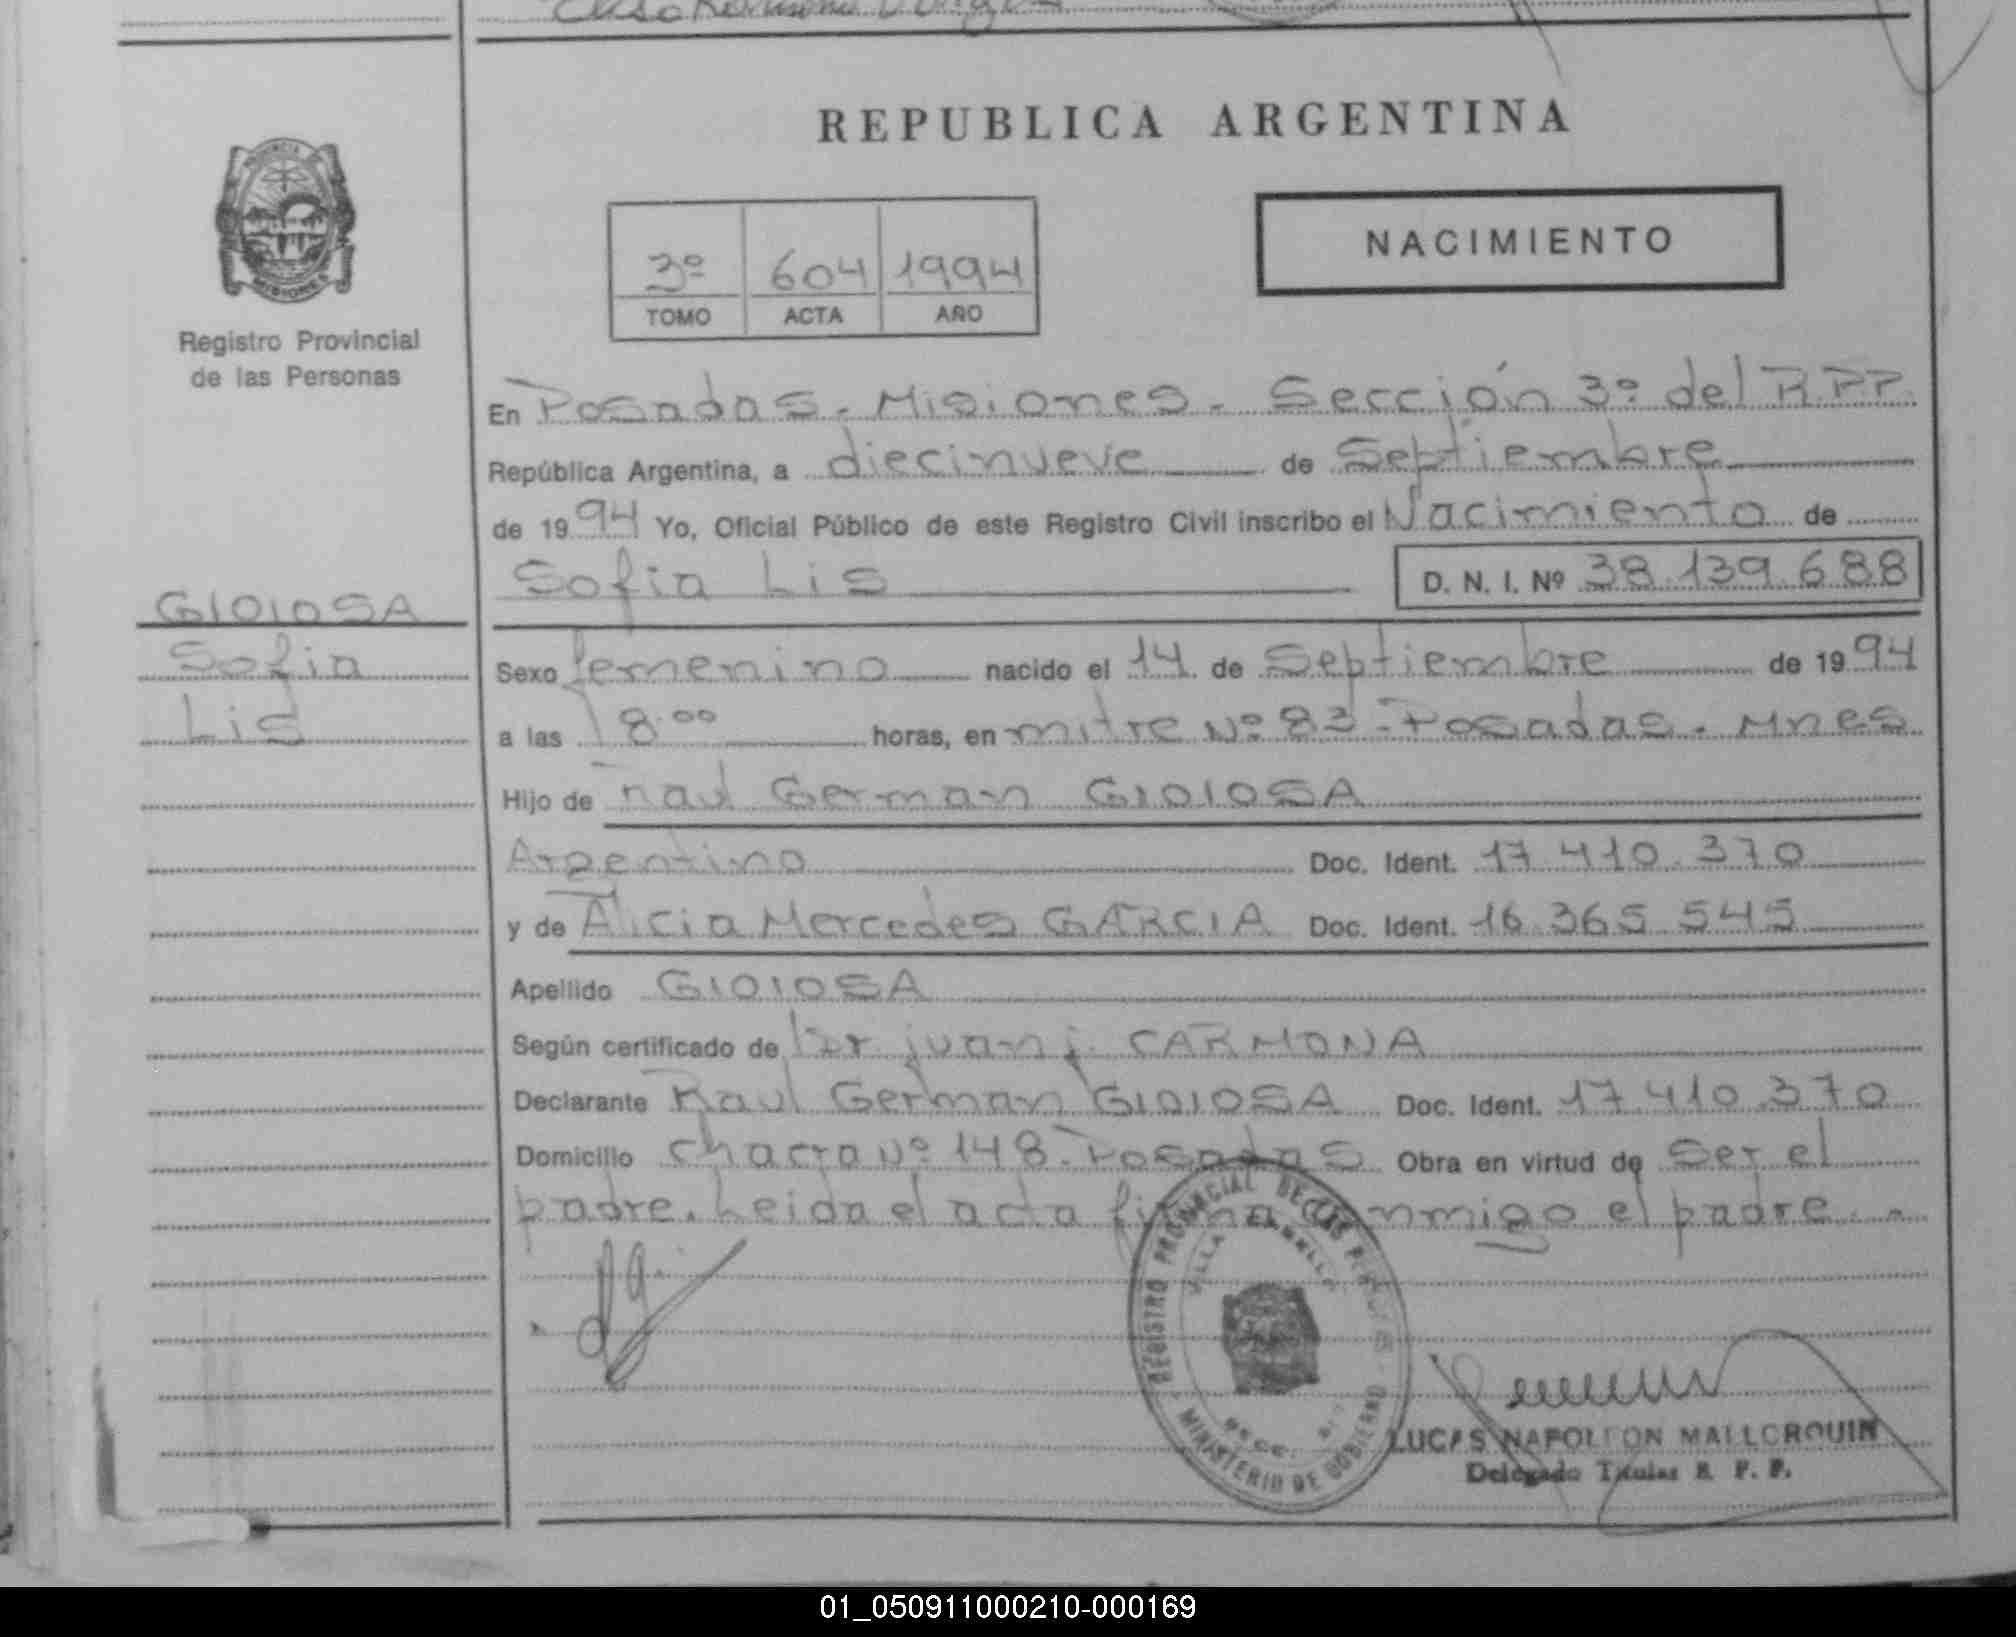 REPUBLICA ARGENTINA
PROVINCIA DE
MISIONES
Registro Provincial
de las Personas
3º 604 1994
TOMO ACTA AÑO
NACIMIENTO
En Posadas. Misiones. Sección 3º del R.P.P.
República Argentina, a diecinueve de Septiembre
de 1994 Yo, Oficial Público de este Registro Civil inscribo el Nacimiento de
Sofia Lis D. N. I. Nº 38.139.688
GIOIOSA
Sofia
Lis
Sexo femenino nacido el 14 de Septiembre de 1994
a las 18.00 horas, en mitre Nº 83 - Posadas. Mnes
Hijo de Raul German GIOIOSA
Argentino Doc. Ident. 17.410.370
y de Alicia Mercedes GARCIA Doc. Ident. 16.365.545
Apellido GIOIOSA
Según certificado de Dr juan j. CARMONA
Declarante Raul German GIOIOSA Doc. Ident. 17.410.370
Domicilio chacra Nº 148. Posadas Obra en virtud de ser el
padre. Leida el acta firma conmigo el padre. -
REGISTRO PROVINCIAL DE LAS PERSONAS
MINISTERIO DE GOBIERNO
LUCAS NAPOLEON MALLORQUIN
Delegado Titular R. P. P.
01_050911000210-000169